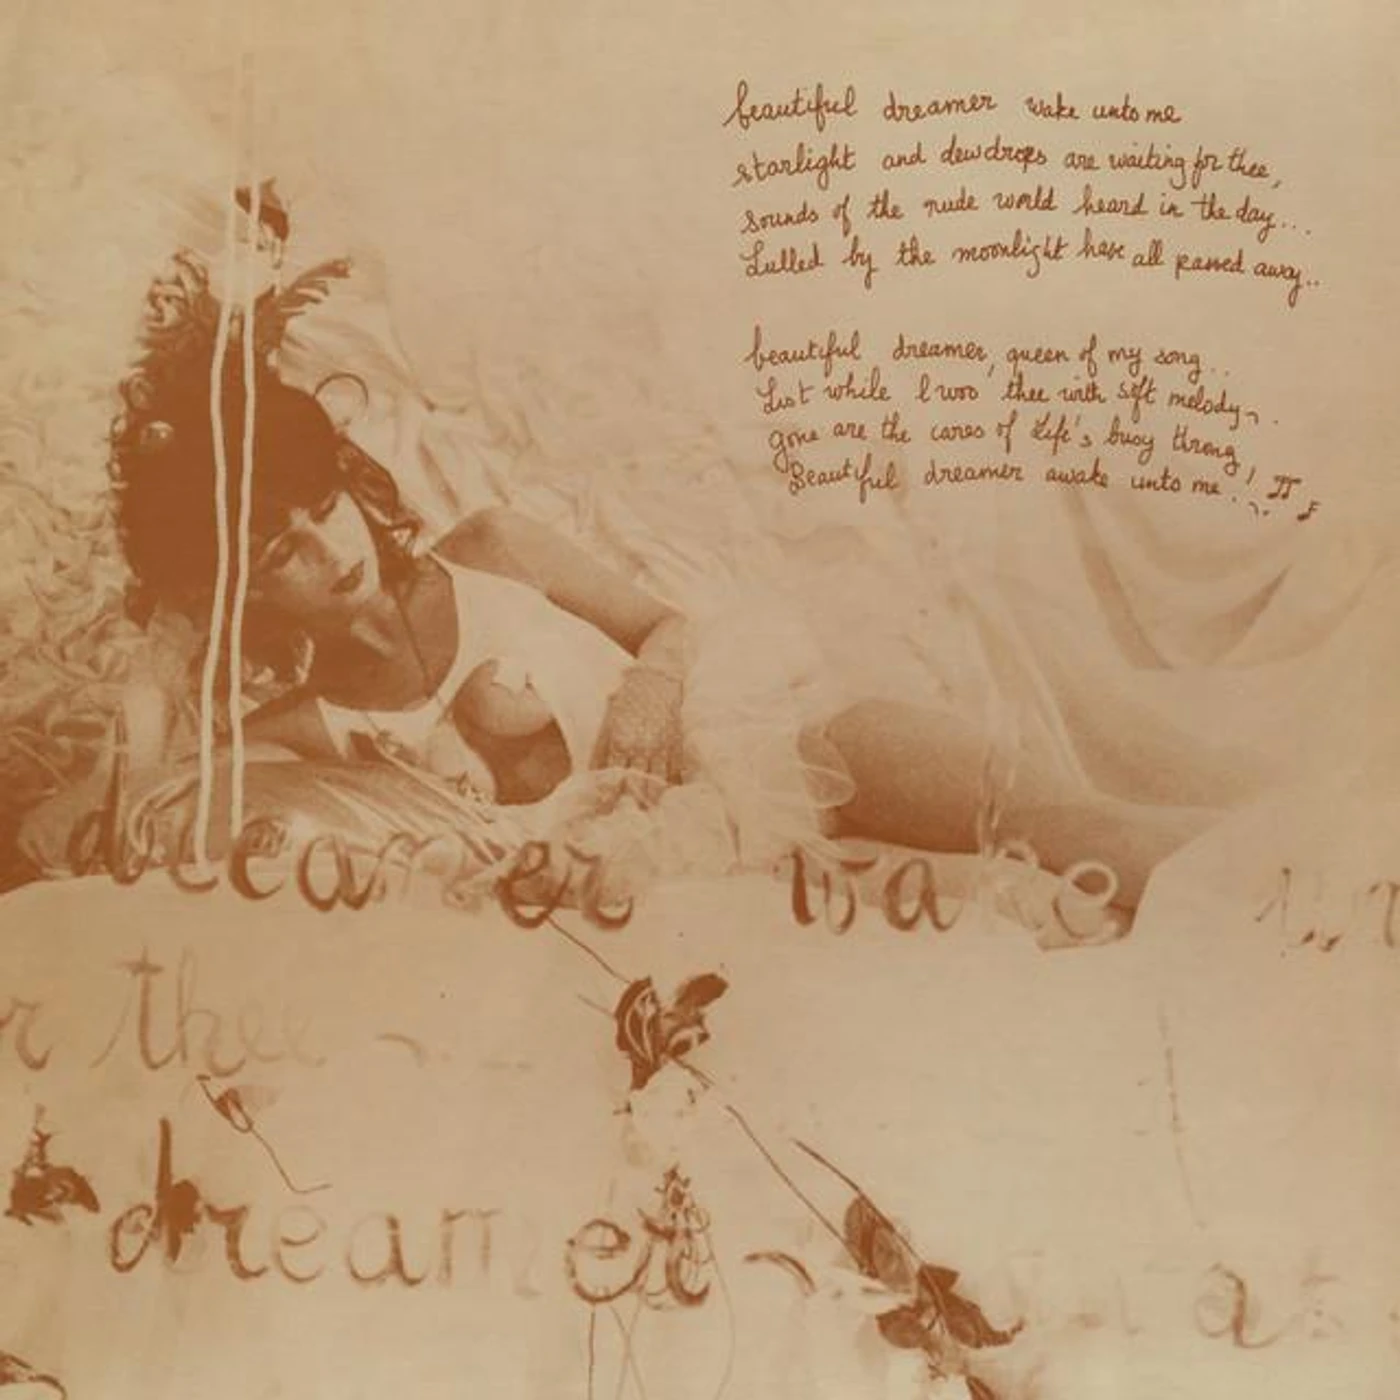 beautiful dreamer wake unto me
starlight and dewdrops are waiting for thee,
sounds of the nude world heard in the day...
Lulled by the moonlight have all passed away..
beautiful dreamer, queen of my song..
List while I woo thee with soft melody
gone are the cares of Life's busy throng,
Beautiful dreamer awake unto me!
dreamer wake un
r thee
dreamer